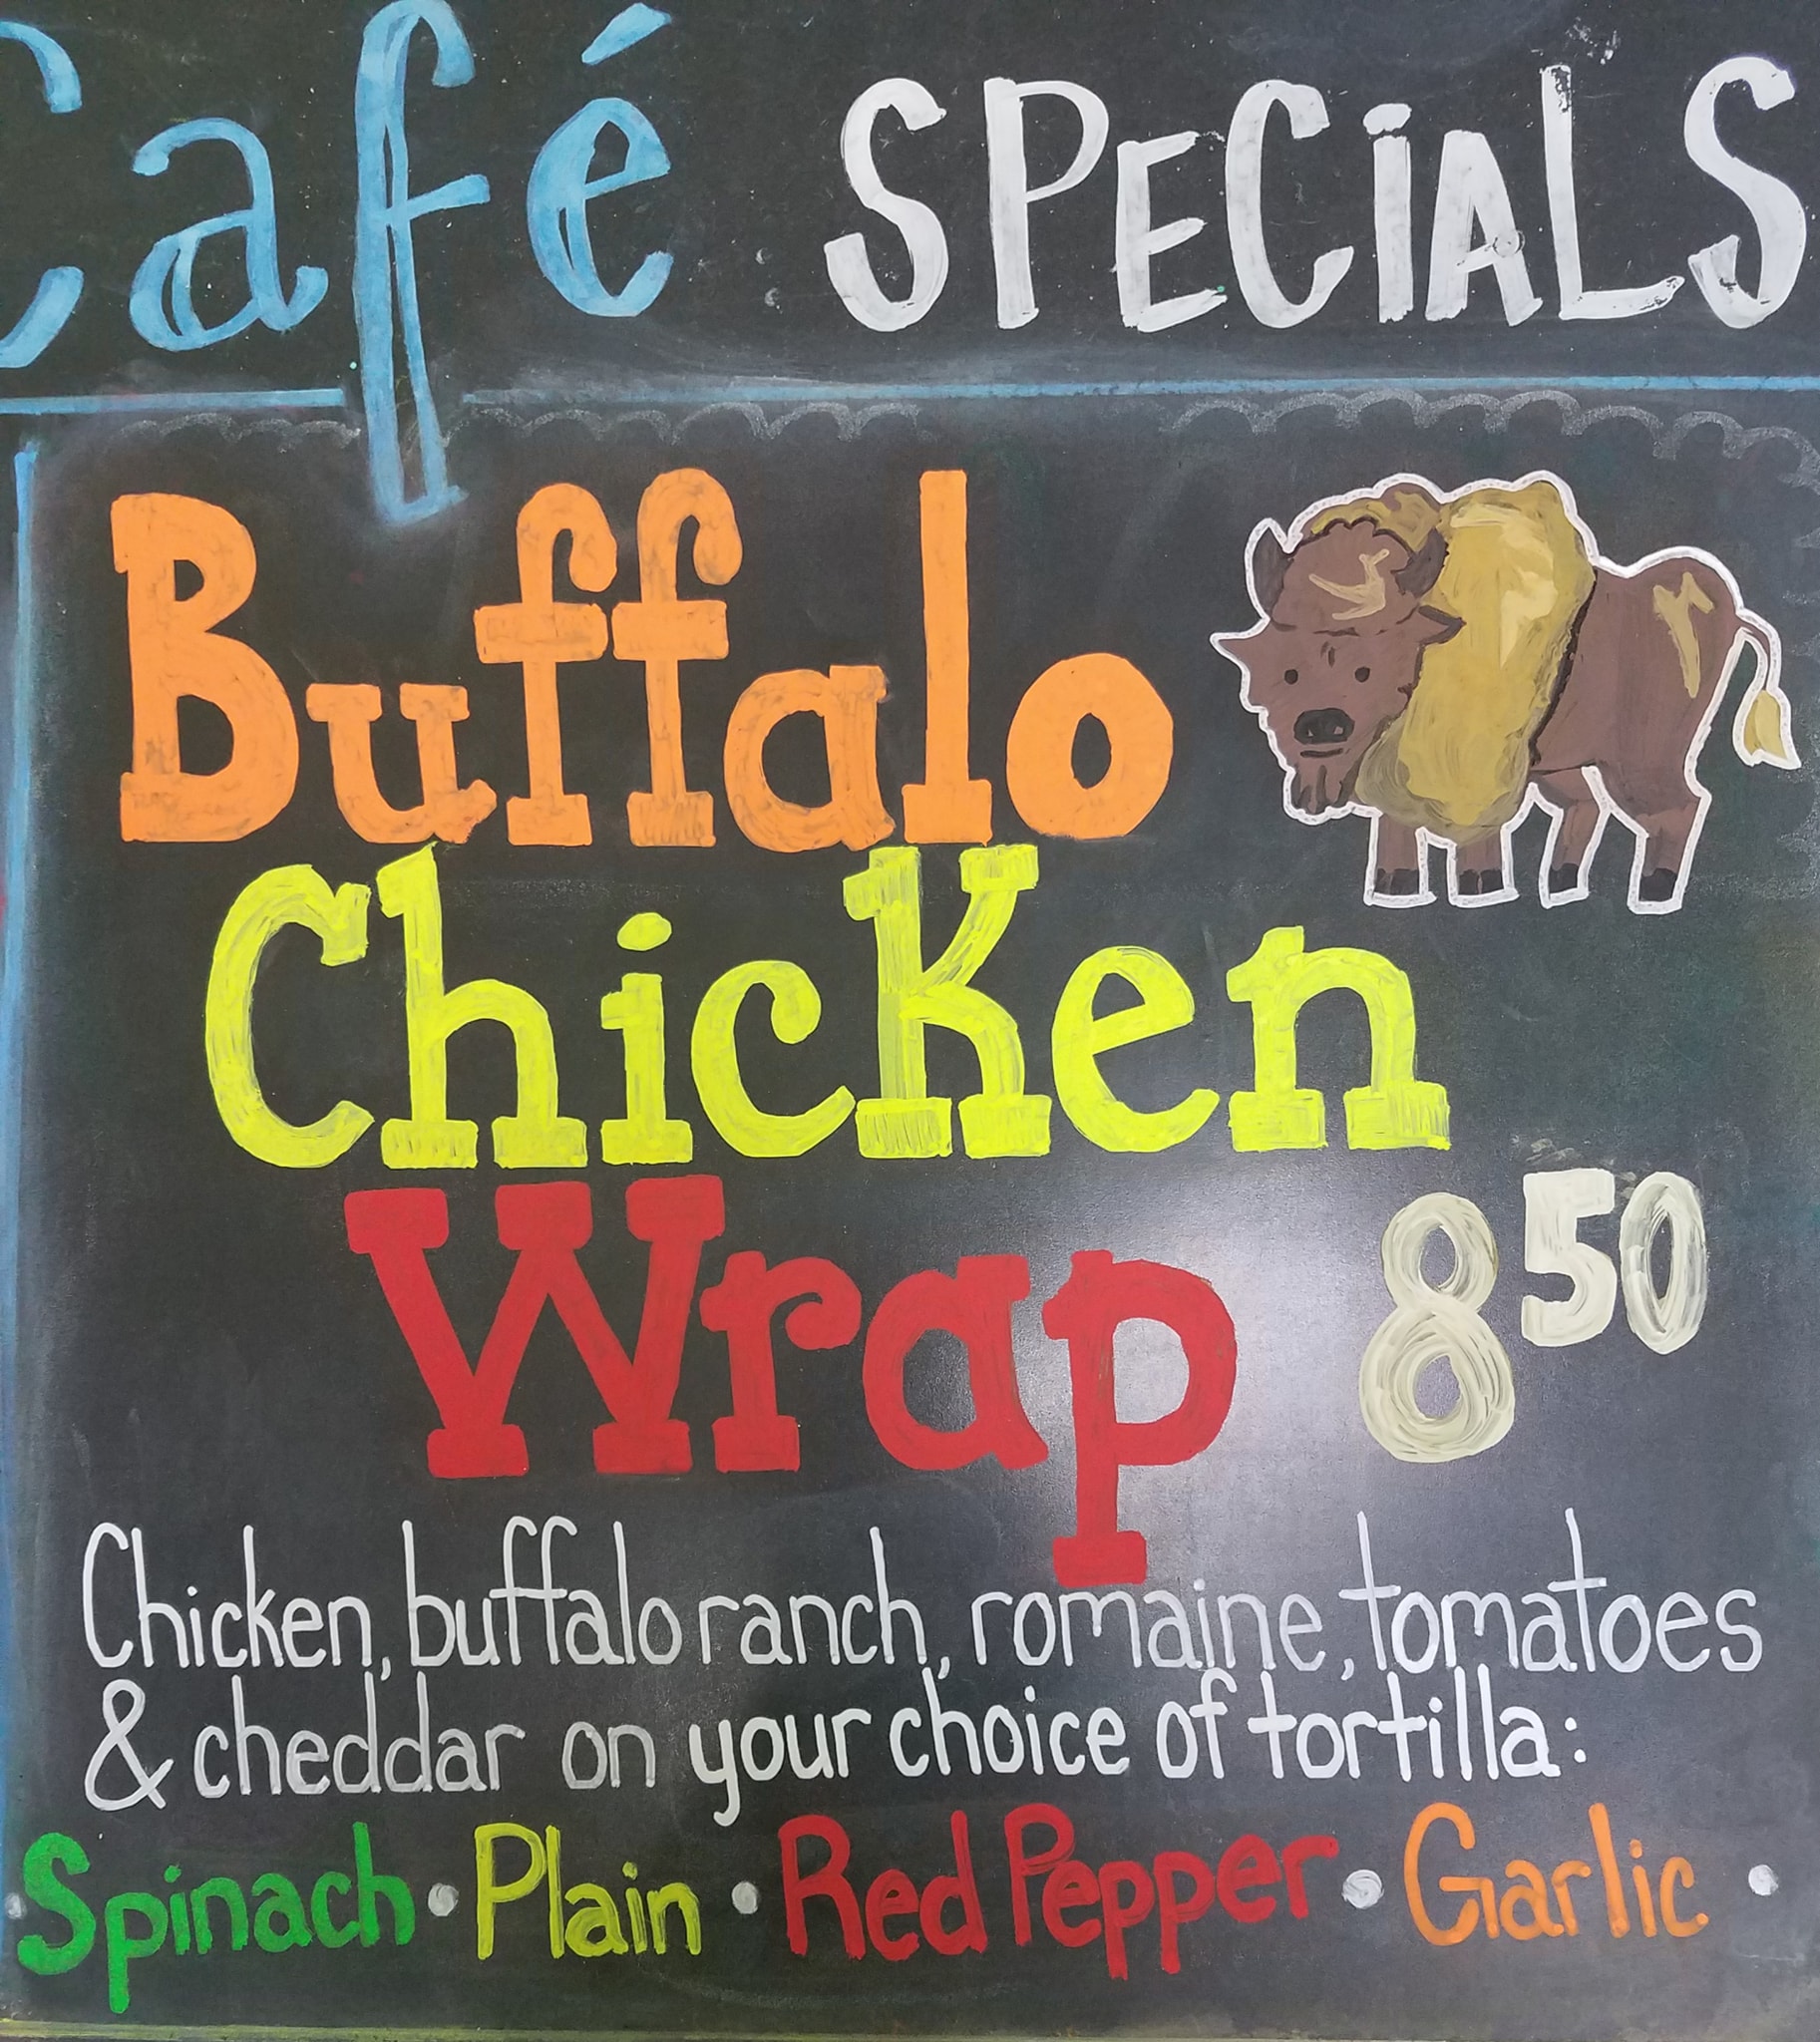 Café SPECIALS
Buffalo
Chicken
Wrap 8 50
Chicken, buffalo ranch, romaine, tomatoes
& cheddar on your choice of tortilla:
• Spinach • Plain • Red Pepper • Garlic •